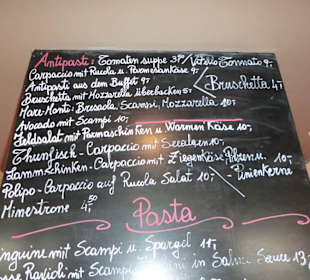 Antipasti: Tomaten suppe 3,50 Vitello Tonnato 9,-
Carpaccio mit Rucola u. Parmesankäse 9,-
Antipasti aus dem Buffet 9,-
Bruschetta 4,-
Bruschetta mit Mozzarella überbacken 5,-
Mari-Monti: Bresaola, Scampi, Mozzarella 10,-
Avocado mit Scampi 10,-
Feldsalat mit Parmaschinken u Warmen Käse 10,-
Thunfisch-Carpaccio mit Secclern 10,-
Lammschinken-Carpaccio mit Ziegenkäse, Birnen u. 10,-
Pinienkerne
Polipo-Carpaccio auf Rucola Salat 10,-
Minestrone 4,50
Pasta
Linguine mit Scampi u. Spargel 11,-
Ravioli mit Scampi in Salvia Sauce 13,-